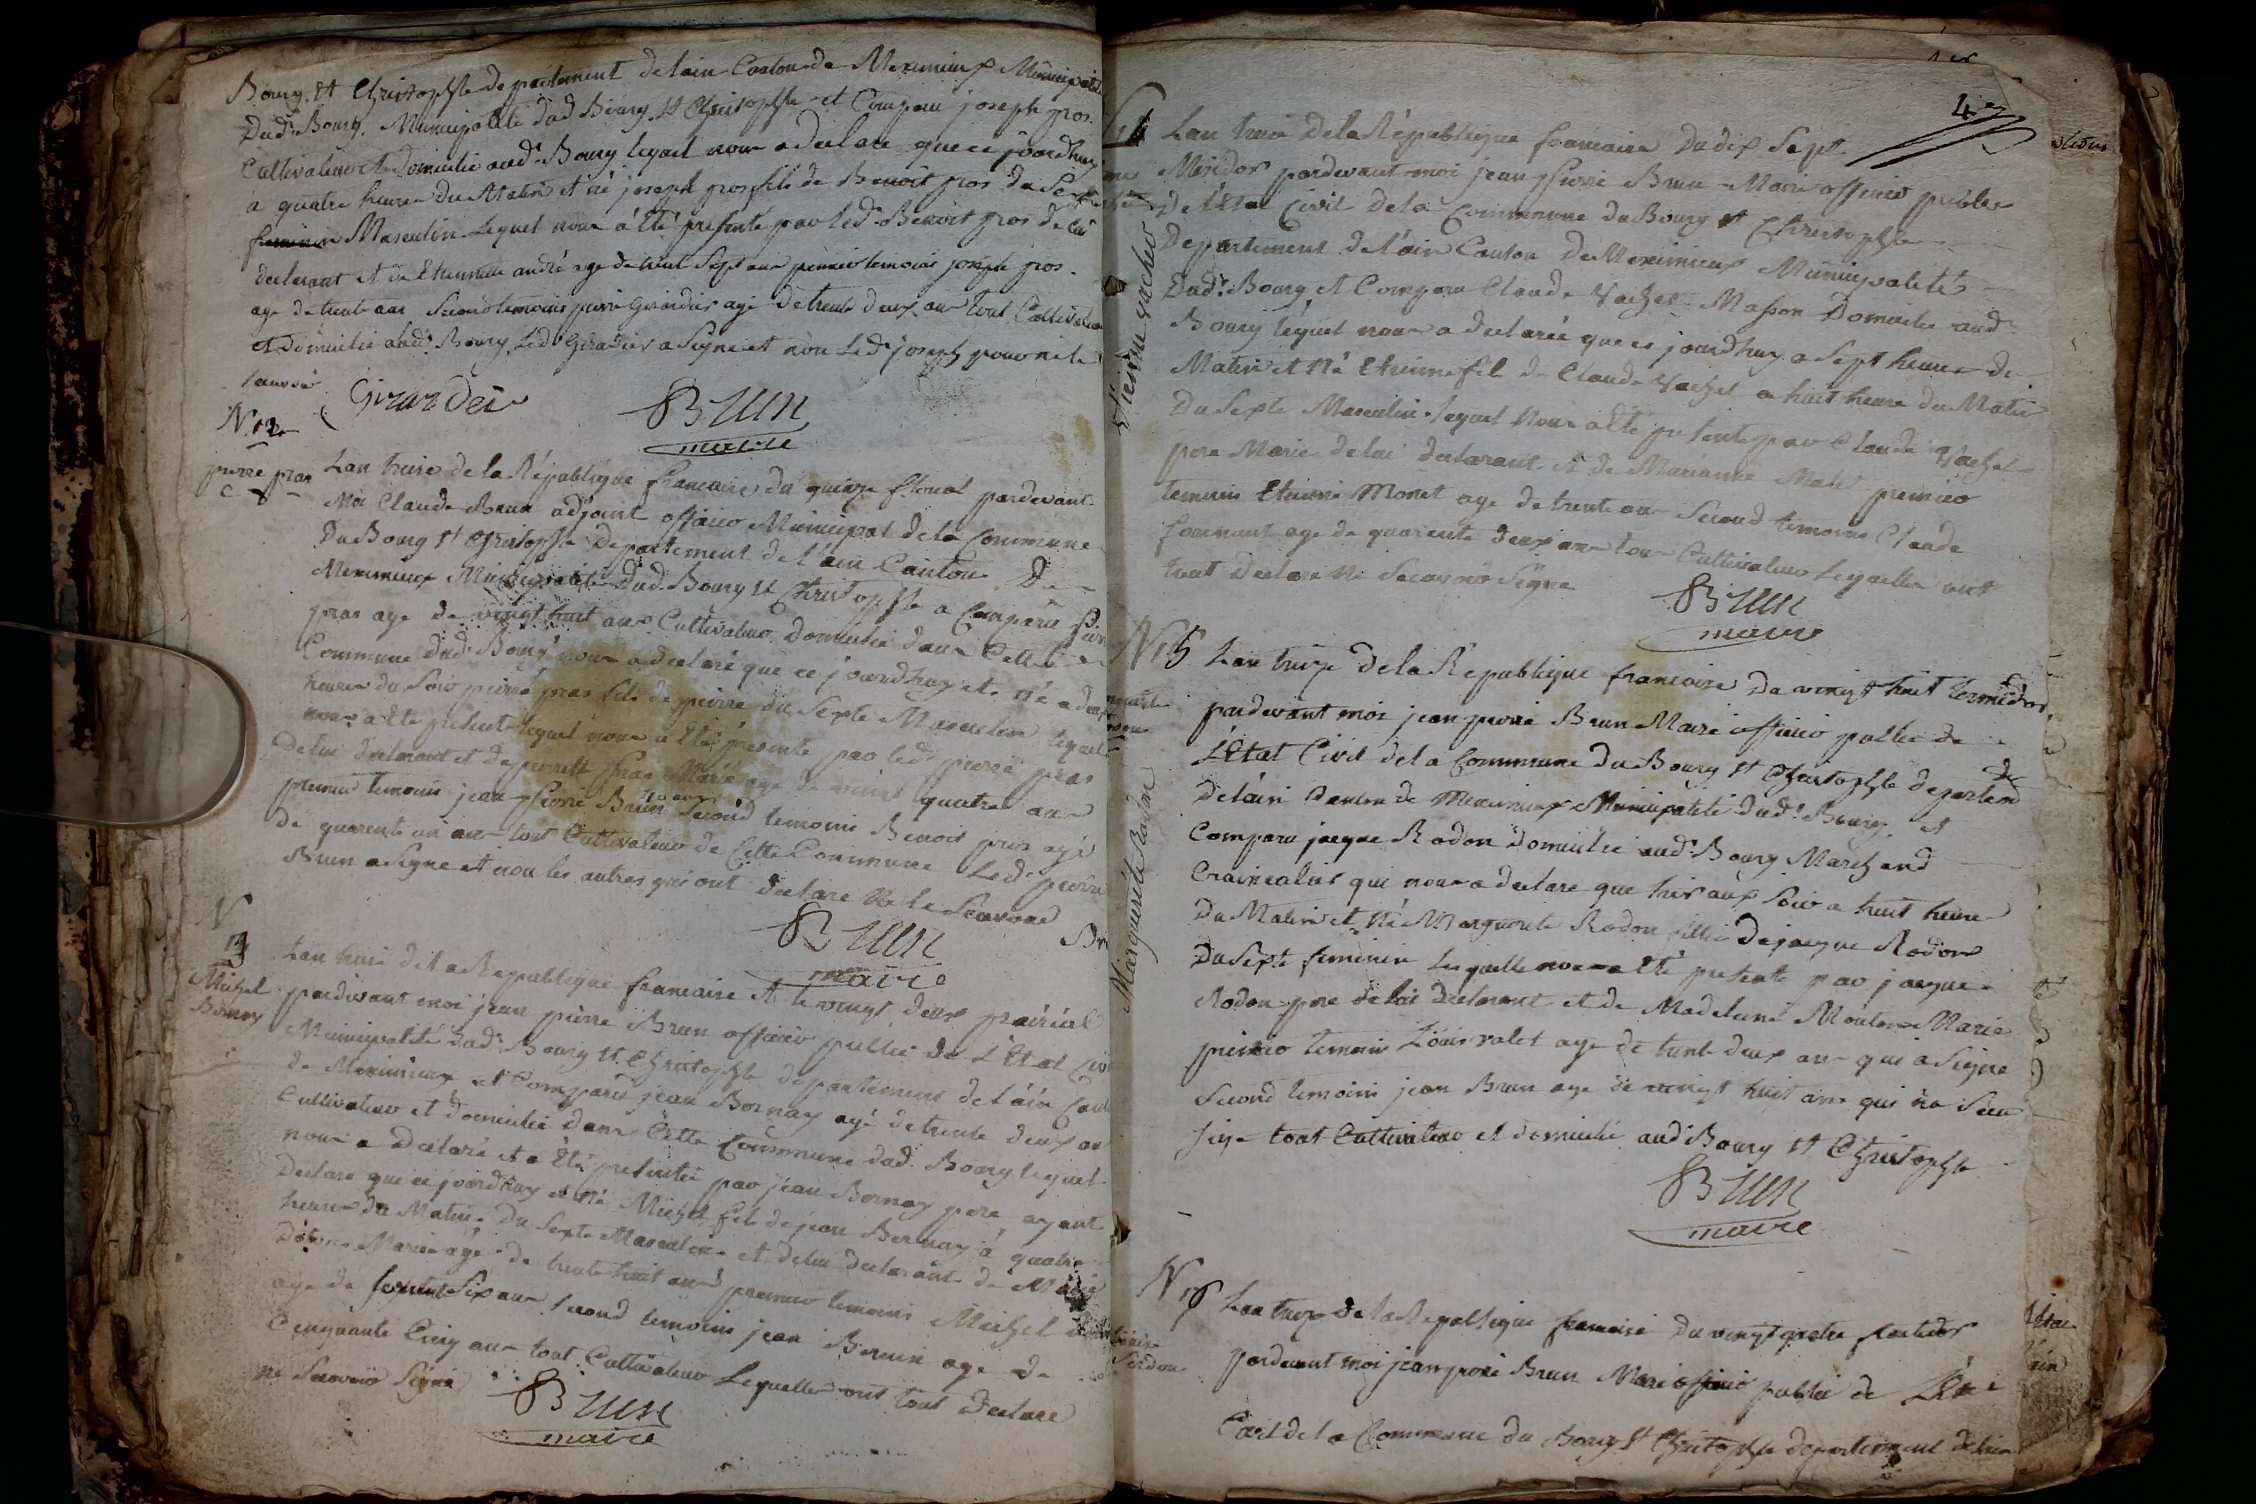 Bourg St Christophle departement delain Canton de Meximieux Municipalité
Dud. Bourg. Municipalité dud Bourg St Christophle et Comparu joseph pros
Cultivateur et domicilié aud. Bourg lequel nous a declare que ce jourdhuy
a quatre heures du Matin et né joseph pros fils de Benoit pros du Sexe
Masculin lequel nous à été presenté par led. Benoit pros de lui
declarant et de Etiennette andré age de trente Sept ans premier temoins joseph pros
age de trente ans Second temoins pierre Girardier agé de trente deux ans tout Cultivateur
et domicilié aud. Bourg Led. Girardier a Signe et non Led. joseph pour ne le
Scavoir
Brun
maire
N. 12
pierre pras
Lan treize de la République francaise du quinze floreal pardevant
Moi Claude Brun adjoint officier Municipal de la Commune
Du Bourg St Christophle departement de l'ain Canton De
Meximieux Municipalité Dud. Bourg St Christophle a Comparu
pras age de vingt huit ans Cultivateur domicilié dans Cette
Commune Dud. Bourg nous a declaré que ce jourdhuy et né a deux
heures du Soir pierre pras fils de pierre du Sexe Masculin lequel
nous a été present lequel nous a été presente par led. pierre pras
Delui declarant et de pras Marie age de vingt quatre ans
premier temoins jean pierre Brun Second temoins Benoit pros agé
de quarente un ans tout Cultivateur de Cette Commune Led. pierre
Brun a Signe et non les autres qui ont declare Ne le Scavoir
Brun
maire
N
13
Michel
Bornay
Lan treize de la Republique francaise et le vingt deux prairial
pardevant moi jean pierre Brun officier public de L'Etat Civil
Municipalité dud. Bourg St Christophle departement de l'ain Canton
de Meximieux et Comparu jean Bornay agé de trente deux ans
Cultivateur et domicilié dans Cette Commune dud. Bourg lequel
nous a Declaré et a Eté presentée par jean Bornay pere ayant
Declare que ce jourdhuy et né Michel fils de jean Bornay à quatre
heures du Matin Du Sexe Masculin et delui declarant de Marie
Marie agé de trente huit ans premier temoins Michel
age de Six ans Second temoins jean Brun age de
Cinquante Cinq ans tout Cultivateur Lesquelles ont tout declare
ne Scavoir Signé
Brun
maire
4
Etienne vachez
Lan treize De la République francaise Du dix Sept
Messidor pardevant moi jean pierre Brun Maire officier public
De l'Etat Civil dela Commune Du Bourg St Christophle
Departement de l'ain Canton De Meximieux Municipalité
Dud. Bourg et Comparu Claude Vachez Masson Domicilié aud.
Bourg lequel nous a declarée que ce jourdhuy a Sept heures du
Matin et Né Etienne fils de Claude Vachez a huit heure du Matin
Du Sexe Masculin lequel Nous a Eté presente par Claude Vachez
pere Marie delui declarant et de Marianne premier
temoins Etienne Monet age de trente ans Second temoins Claude
age de quarente deux ans tous Cultivateur Lesquelles ont
tout Declare Ne Scavoir Signe
Brun
maire
N 15
Marguerite Rodon
Lan treize De la République francaise Du vingt huit termidor
pardevant moi jean pierre Brun Maire officier public de
L'Etat Civil dela Commune Du Bourg St Christophle departement
Delain Canton de Meximieux Municipalité dud. Bourg et
Comparu jacque Rodon Domicilié aud. Bourg Marchand
qui nous a declare que hier aux Soir a huit heure
Du Matin et Né Marguerite Rodon fille de jacque Rodon
Du Sexe feminin Lequelle nous a Eté presente par jacque
Rodon pere de lui declarant et de Madeleine Marie
premier temoin Louis valet age de trente deux ans qui à Signe
Second temoins jean Brun age de vingt huit ans qui na Sceu
tout Cultivateur et domicilié aud. Bourg St Christophle
Brun
maire
N 16
Lan treize De la Republique francaise Du vingt quatre fructidor
pardevant moi jean pierre Brun Maire officier public de L'Etat
Civil de la Commune du Bourg St Christophle departement delain